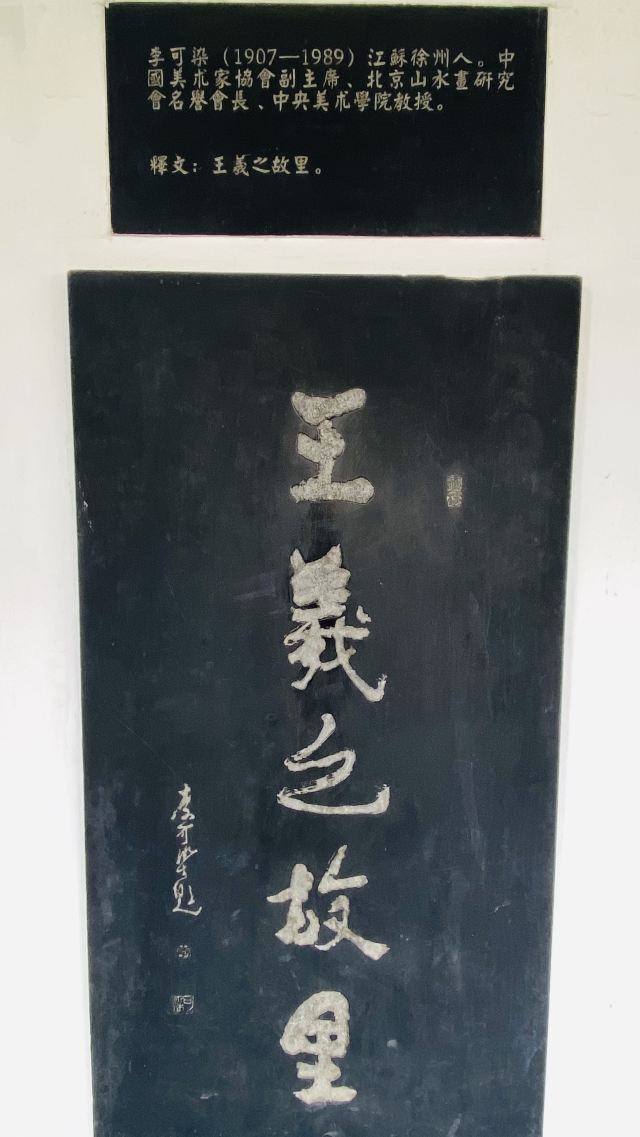 李可染（1907—1989）江蘇徐州人。中
國美术家協會副主席、北京山水畫研究
會名譽會長、中央美术學院教授。
釋文：王羲之故里。
王羲之故里
李可染題